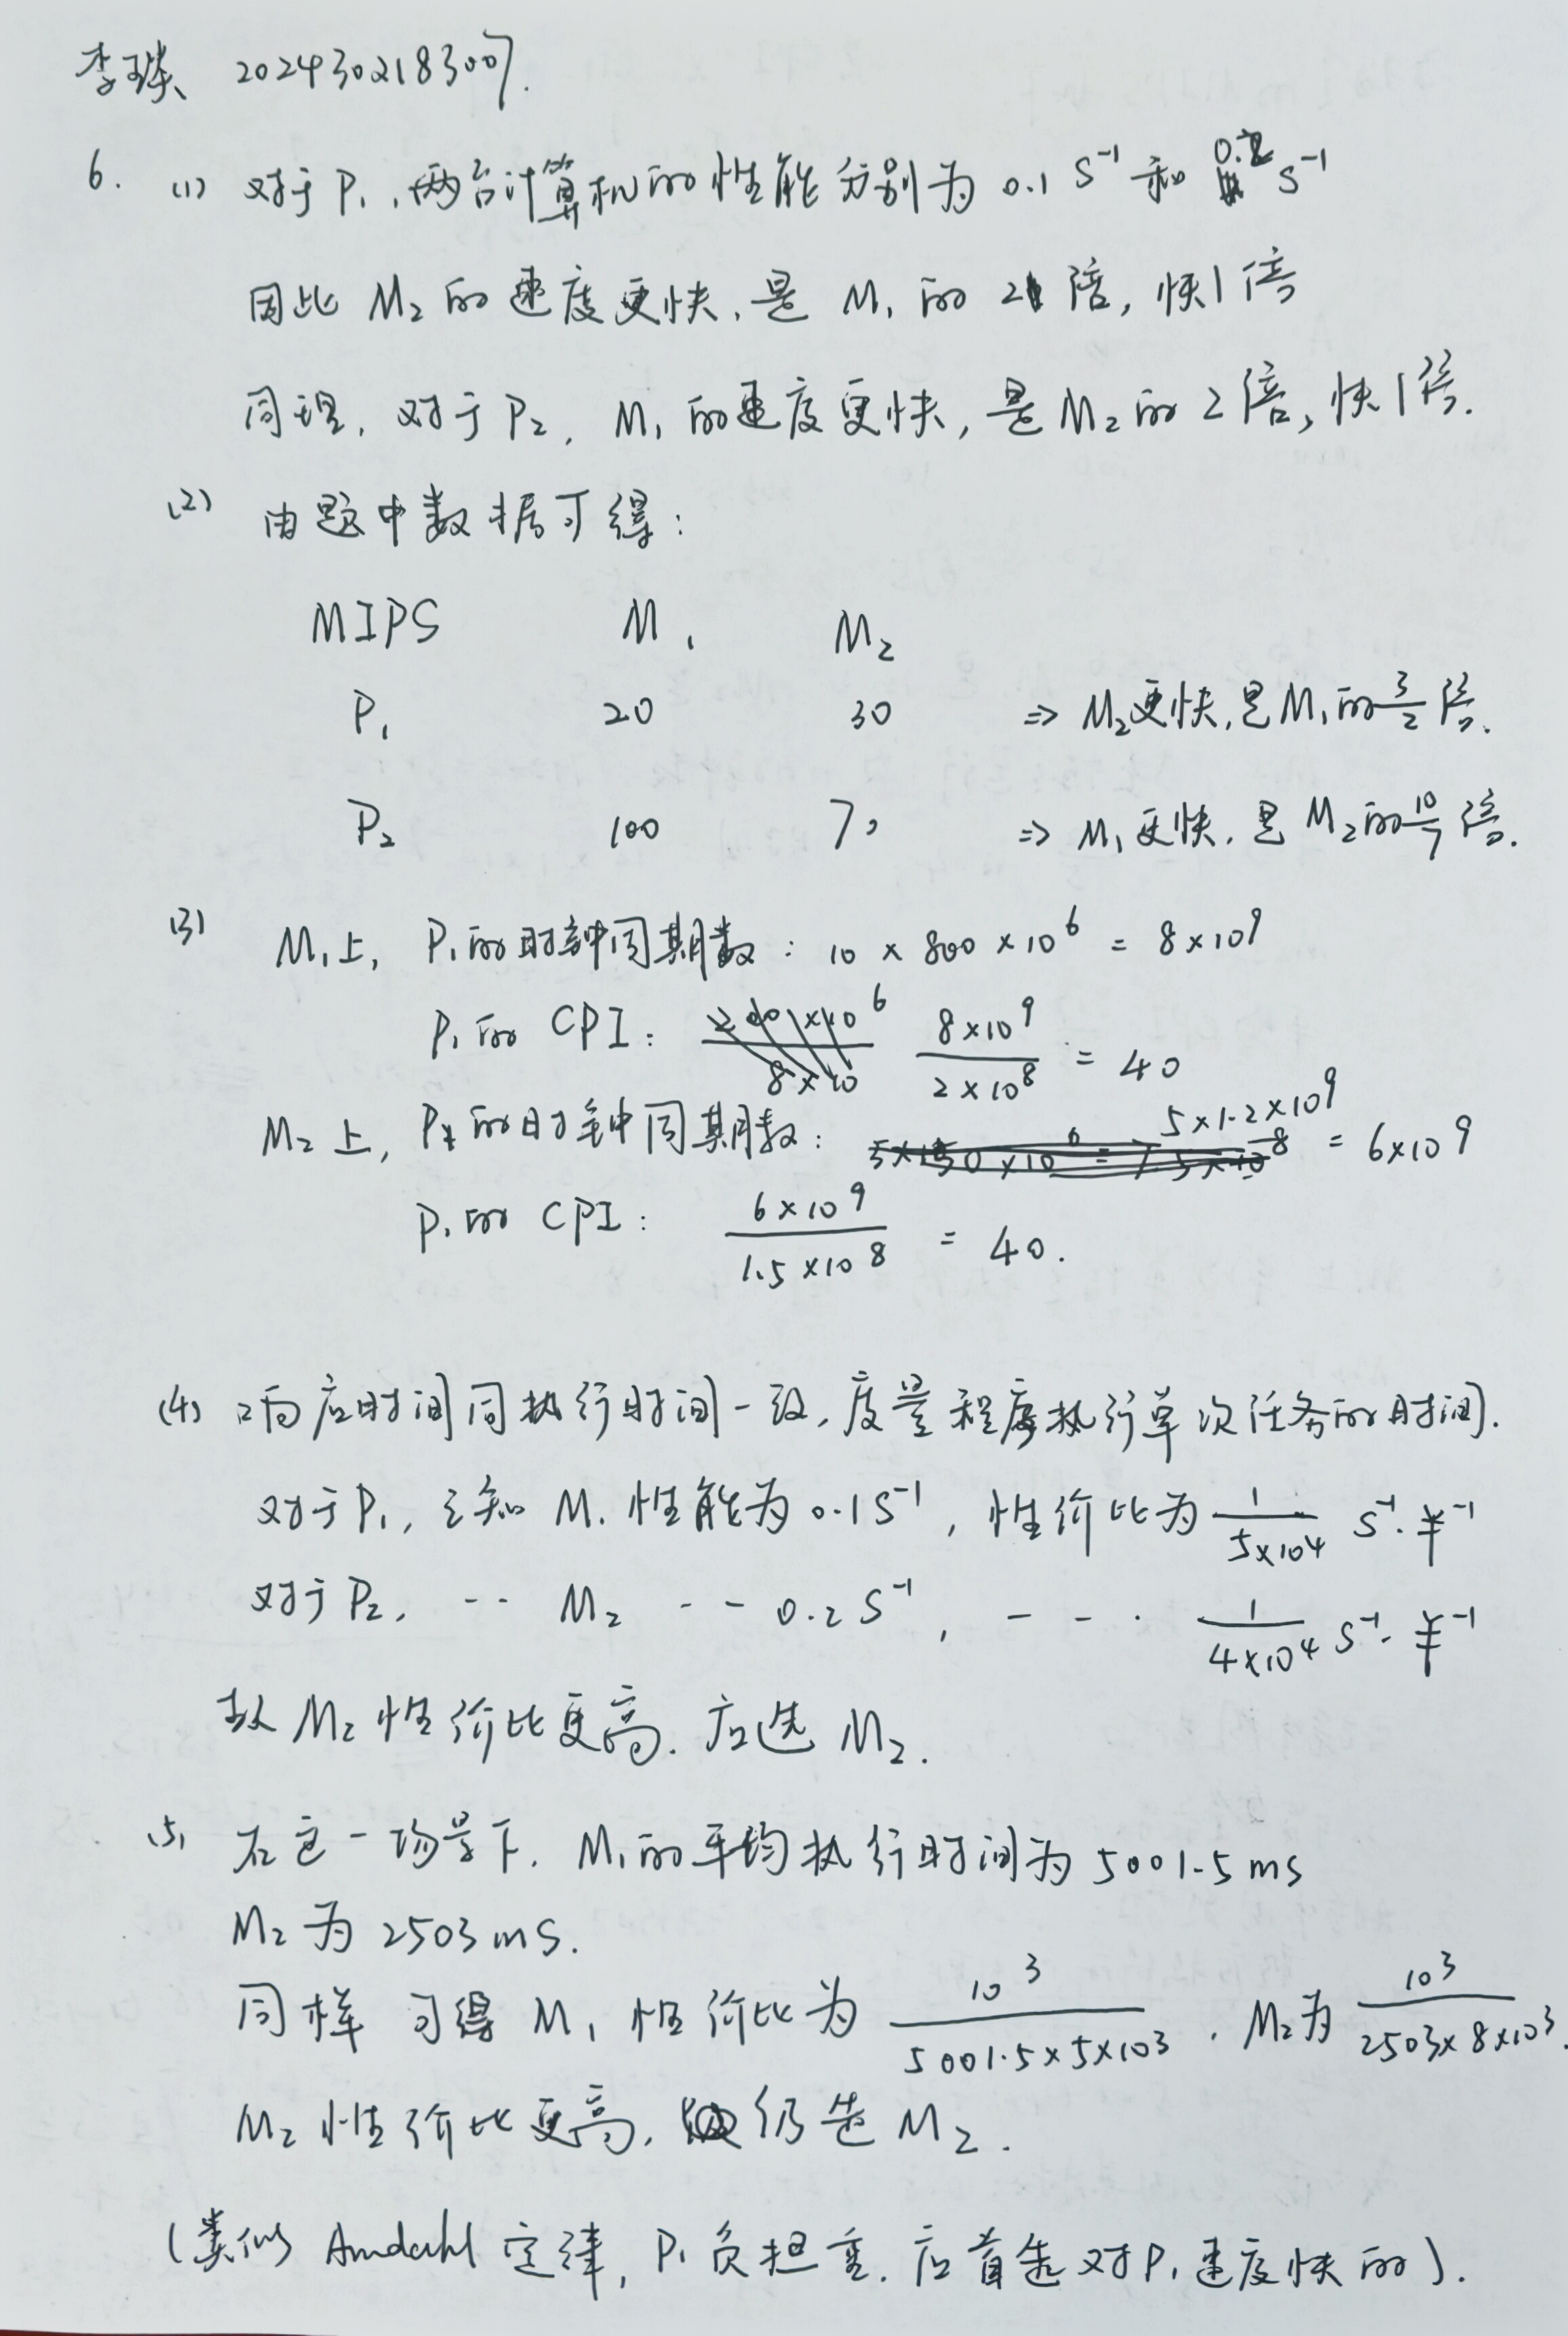 李琰 2024302183007.
6. (1) 对于P₁,两台计算机的性能分别为 0.1 S⁻¹ 和 0.2 S⁻¹
因此 M₂ 的速度更快,是 M₁ 的 2 倍, 快1倍
同理, 对于P₂, M₁ 的速度更快, 是M₂的2倍, 快1倍.
(2) 由题中数据可得:
MIPS M₁ M₂
P₁ 20 30 ⇒ M₂更快,是M₁的 3/2 倍.
P₂ 100 70 ⇒ M₁更快,是 M₂的 10/7 倍.
(3) M₁上, P₁的时钟周期数: 10 × 800 × 10⁶ = 8×10⁹
P₁的 CPI: (8×10⁹)/(2×10⁸) = 40
M₂上, P₁的时钟周期数: 5×1.2×10⁹ = 6×10⁹
P₁的 CPI: (6×10⁹)/(1.5×10⁸) = 40.
(4) 响应时间同执行时间一致,度量程序执行单次任务的时间.
对于P₁, 已知 M₁ 性能为 0.1 S⁻¹, 性价比为 1/(5×10⁴) S⁻¹·¥⁻¹
对于P₂, -- M₂ -- 0.2 S⁻¹, - - · 1/(4×10⁴) S⁻¹·¥⁻¹
故 M₂ 性价比更高. 应选 M₂.
(5) 在这一场景下, M₁的平均执行时间为 5001.5 ms
M₂ 为 2503 ms.
同样 可得 M₁ 性价比为 10³/(5001.5×5×10³), M₂为 10³/(2503×8×10³).
M₂ 性价比更高, 仍选 M₂.
(类似 Amdahl 定律, P₁ 负担重, 应首选对P₁速度快的).